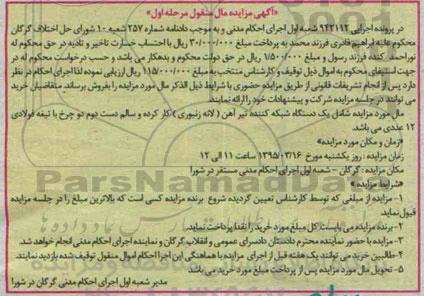 «آگهی مزایده مال منقول مرحله اول»
در پرونده اجرایی ۹۴۲۱۱۲ شعبه اول اجرای احکام مدنی و به موجب دادنامه شماره ۲۵۷ شعبه ۱۰ شورای حل اختلاف گرگان
محکوم علیه ابراهیم قادری فرزند محمد به پرداخت مبلغ ۳۰/۰۰۰/۰۰۰ ریال با احتساب خسارت تاخیر و تادیه در حق محکوم له
نوراحمد کنده فرزند رسول و مبلغ ۱/۵۰۰/۰۰۰ ریال در حق دولت محکوم و بدهکار می باشد و حسب درخواست محکوم له در
جهت استیفای محکوم به اموال ذیل توقیف و کارشناس منتخب به مبلغ ۱۱۵/۰۰۰/۰۰۰ ریال ارزیابی نموده لذا اجرای احکام در نظر
دارد پس از انجام تشریفات قانونی از طریق مزایده حضوری با شرایط ذیل الذکر مال مورد مزایده را بفروش برساند. متقاضیان خرید
می توانند در جلسه مزایده شرکت و پیشنهادات خود را ارائه نمایند.
مال مورد مزایده شامل یک دستگاه شبکه کننده تیر آهن ( لانه زنبوری ) کار کرده و سالم دست دوم دو چرخ با تیغه فولادی
۱۲ عددی می باشد.
«زمان و مکان مورد مزایده»
زمان مزایده : روز یکشنبه مورخ ۱۳۹۵/۰۳/۱۶ ساعت ۱۱ الی ۱۲
مکان مزایده : گرگان – شعبه اول اجرای احکام مدنی مستقر در شورا
«شرایط مزایده »
۱– مزایده از مبلغی که توسط کارشناسی تعیین گردیده شروع برنده مزایده کسی است که بالاترین مبلغ را در جلسه مزایده
قبول نماید.
۲– برنده مزایده می بایست کل مبلغ مورد خرید را نقدا پرداخت نماید.
۳– مزایده با حضور نماینده محترم دادستان دادسرای عمومی و انقلاب گرگان و نماینده اجرای احکام مدنی انجام خواهد شد.
۴– طالبین خرید می توانند یک هفته قبل از اجرای مزایده با هماهنگی این اجرا احکام اموال منقول توقیف شده بازدید نمایند.
۵– تحویل مال مورد مزایده پس از پرداخت مبلغ مورد خرید می باشد.
مدیر شعبه اول اجرای احکام مدنی گرگان در شورا
ParsNamadData